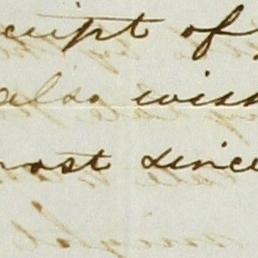 ceipt of
also wish
most since